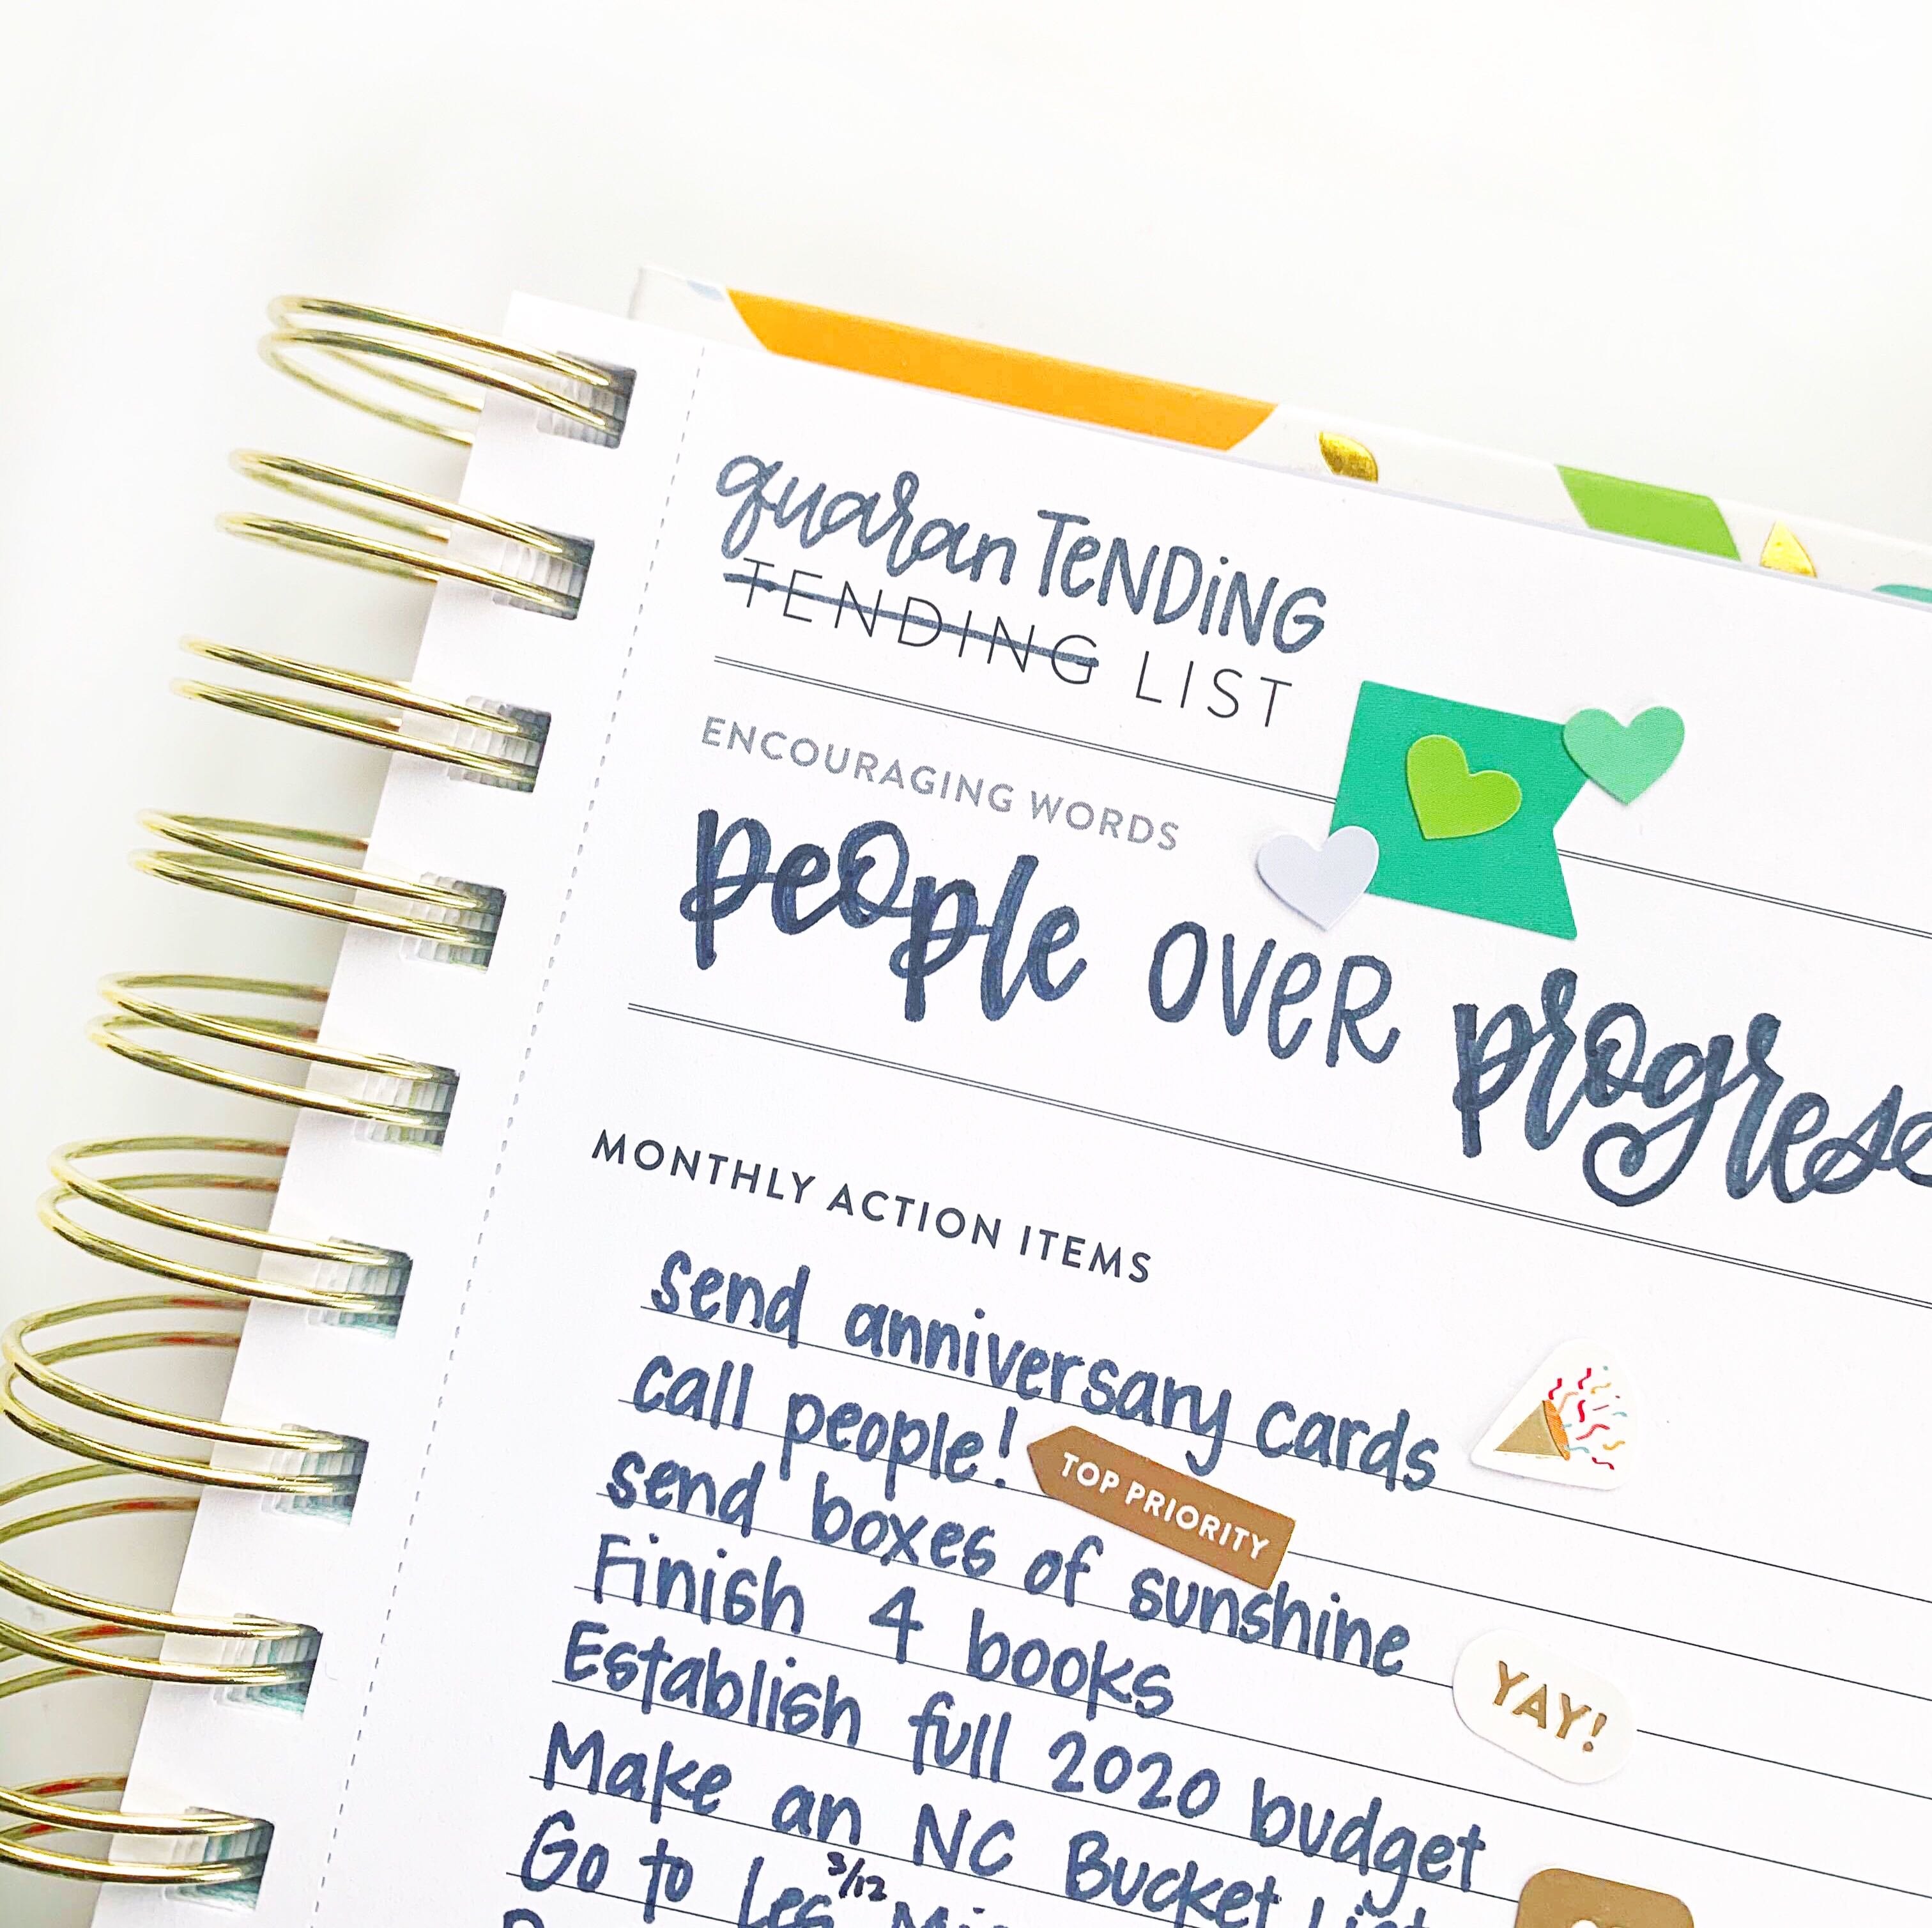 quaranTENDING
TENDING LIST
ENCOURAGING WORDS
people over progress
MONTHLY ACTION ITEMS
send anniversary cards
call people! TOP PRIORITY
send boxes of sunshine
Finish 4 books YAY!
Establish full 2020 budget
Make an NC Bucket List
3/12
Go to Les